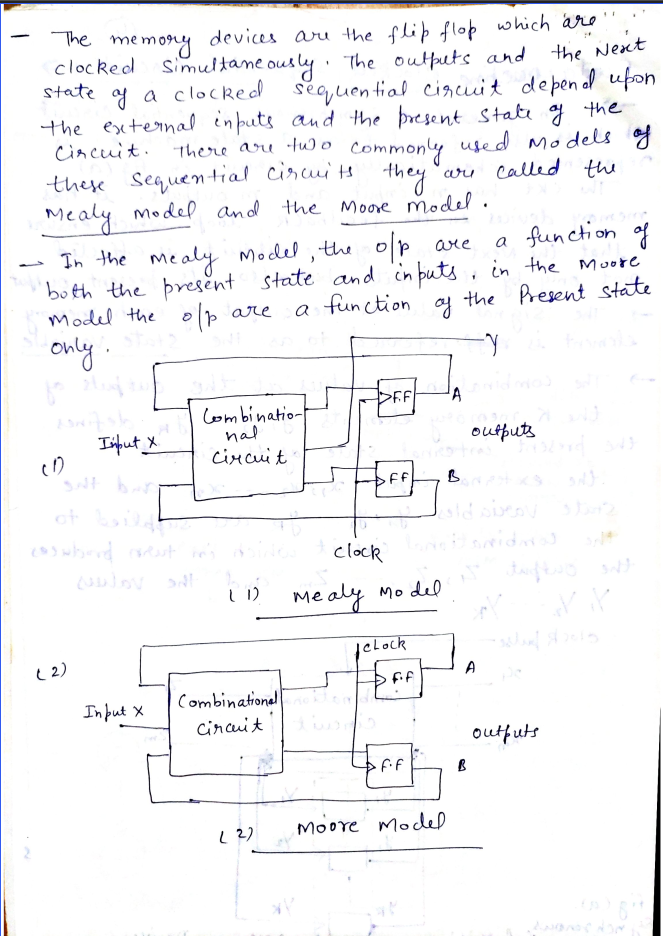 – The memory devices are the flip flop which are
clocked Simultaneously. The outputs and the Next
state of a clocked sequential circuit depend upon
the external inputs and the present state of the
Circuit. There are two commonly used Models of
these Sequential Circuits they are called the
Mealy model and the Moore model.
– In the Mealy Model, the o/p are a function of
both the present state and inputs in the Moore
Model the o/p are a function of the Present state
only.
Y
Combinatio-
nal
Circuit
Input X
F.F
A
outputs
(1)
F.F
B
clock
(1) Mealy Model
(2)
clock
F.F
A
Combinational
Circuit
Input X
outputs
F.F
B
(2) Moore Model